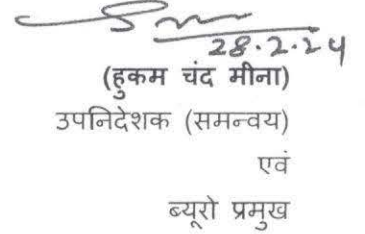 28.2.24
(हुकम चंद मीना)
उपनिदेशक (समन्वय)
एवं
ब्यूरो प्रमुख